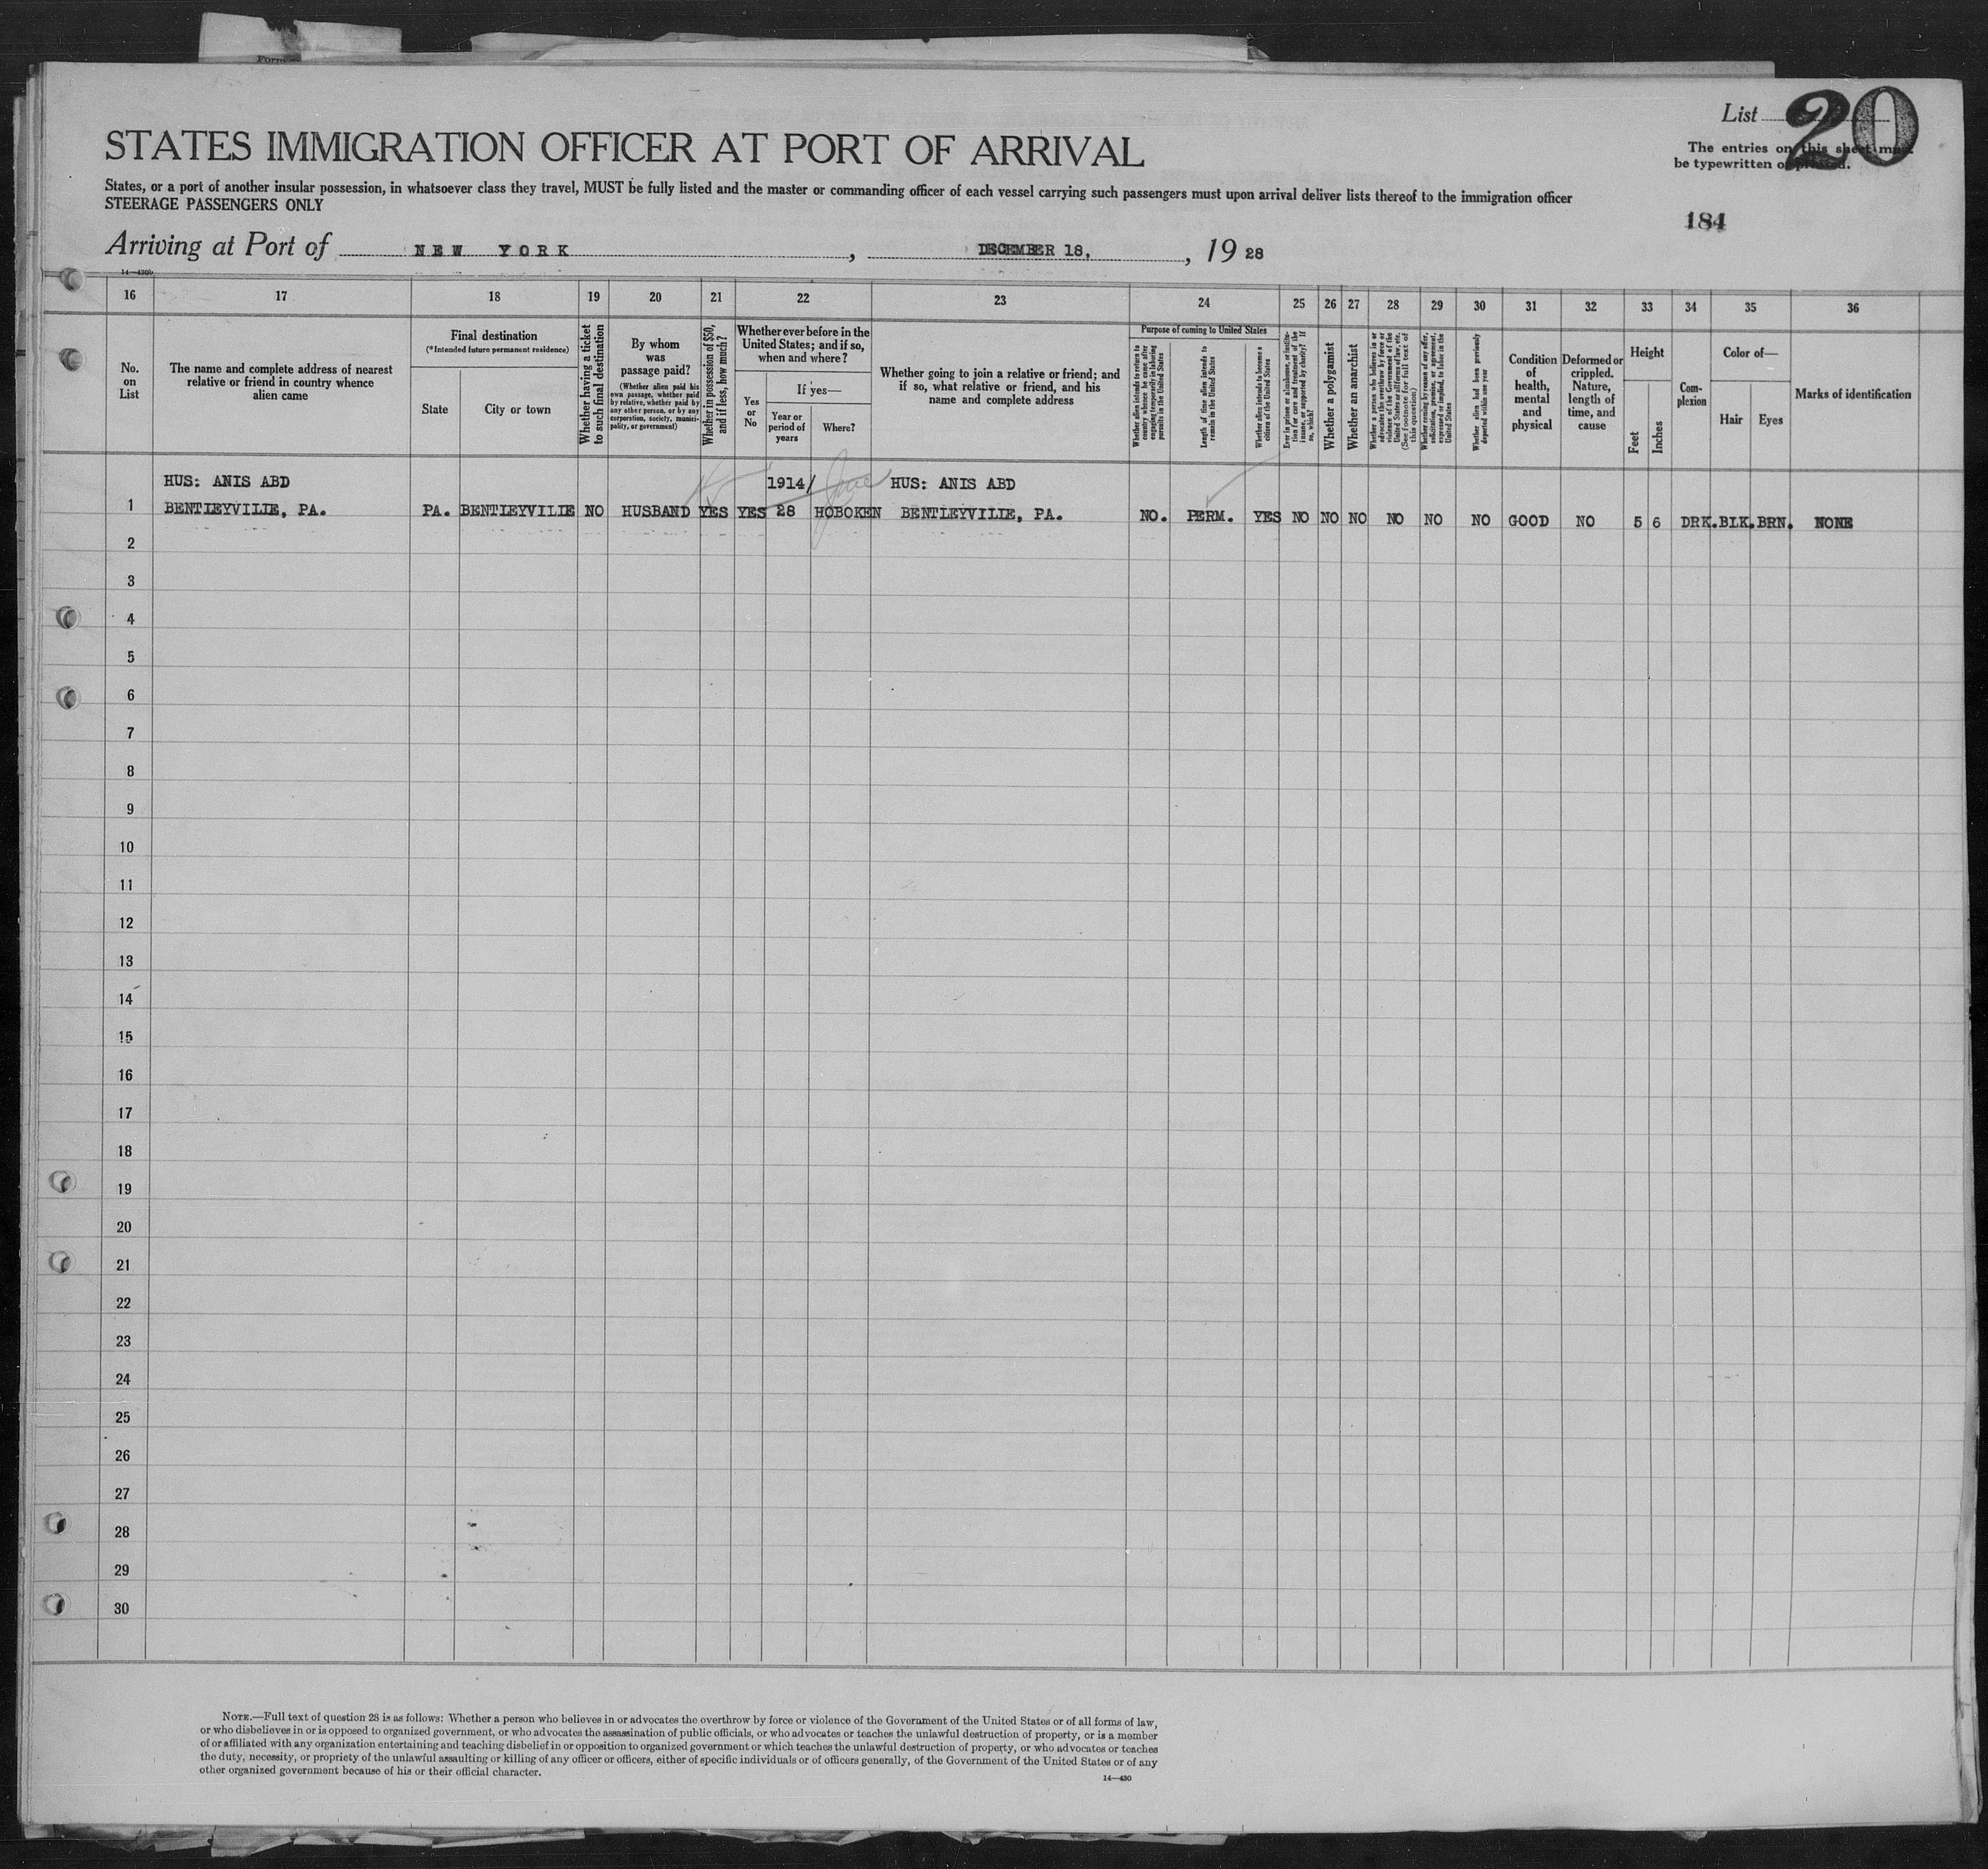 Form
List 20
The entries on this sheet must
be typewritten or printed.
STATES IMMIGRATION OFFICER AT PORT OF ARRIVAL
States, or a port of another insular possession, in whatsoever class they travel, MUST be fully listed and the master or commanding officer of each vessel carrying such passengers must upon arrival deliver lists thereof to the immigration officer
STEERAGE PASSENGERS ONLY
184
Arriving at Port of NEW YORK, DECEMBER 18, , 19 28
14—430b
16 17 18 19 20 21 22 23 24 25 26 27 28 29 30 31 32 33 34 35 36
No.
on
List
The name and complete address of nearest
relative or friend in country whence
alien came
Final destination
(*Intended future permanent residence)
State
City or town
Whether having a ticket
to such final destination
By whom
was
passage paid?
(Whether alien paid his
own passage, whether paid
by relative, whether paid by
any other person, or by any
corporation, society, munici-
pality, or government)
Whether in possession of $50,
and if less, how much?
Whether ever before in the
United States; and if so,
when and where?
Yes
or
No
If yes—
Year or
period of
years
Where?
Whether going to join a relative or friend; and
if so, what relative or friend, and his
name and complete address
Purpose of coming to United States
Whether alien intends to return to
country whence he came after
engaging temporarily in laboring
pursuits in the United States
Length of time alien intends to
remain in the United States
Whether alien intends to become a
citizen of the United States
Ever in prison or almshouse, or institu-
tion for care and treatment of the
insane, or supported by charity? If
so, which?
Whether a polygamist
Whether an anarchist
Whether a person who believes in or
advocates the overthrow by force or
violence of the Government of the
United States or all forms of law, etc.
(See footnote for full text of
this question)
Whether coming by reason of any offer,
solicitation, promise, or agreement,
expressed or implied, to labor in the
United States
Whether alien had been previously
deported within one year
Condition
of
health,
mental
and
physical
Deformed or
crippled.
Nature,
length of
time, and
cause
Height
Feet
Inches
Com-
plexion
Color of—
Hair
Eyes
Marks of identification
HUS: ANIS ABD 1914/ HUS: ANIS ABD
1 BENTLEYVILLE, PA. PA. BENTLEYVILLE NO HUSBAND YES YES 28 HOBOKEN BENTLEYVILLE, PA. NO. PERM. YES NO NO NO NO NO NO GOOD NO 5 6 DRK. BLK. BRN. NONE
2
3
4
5
6
7
8
9
10
11
12
13
14
15
16
17
18
19
20
21
22
23
24
25
26
27
28
29
30
NOTE.—Full text of question 28 is as follows: Whether a person who believes in or advocates the overthrow by force or violence of the Government of the United States or of all forms of law,
or who disbelieves in or is opposed to organized government, or who advocates the assassination of public officials, or who advocates or teaches the unlawful destruction of property, or is a member
of or affiliated with any organization entertaining and teaching disbelief in or opposition to organized government or which teaches the unlawful destruction of property, or who advocates or teaches
the duty, necessity, or propriety of the unlawful assaulting or killing of any officer or officers, either of specific individuals or of officers generally, of the Government of the United States or of any
other organized government because of his or their official character.
14—430